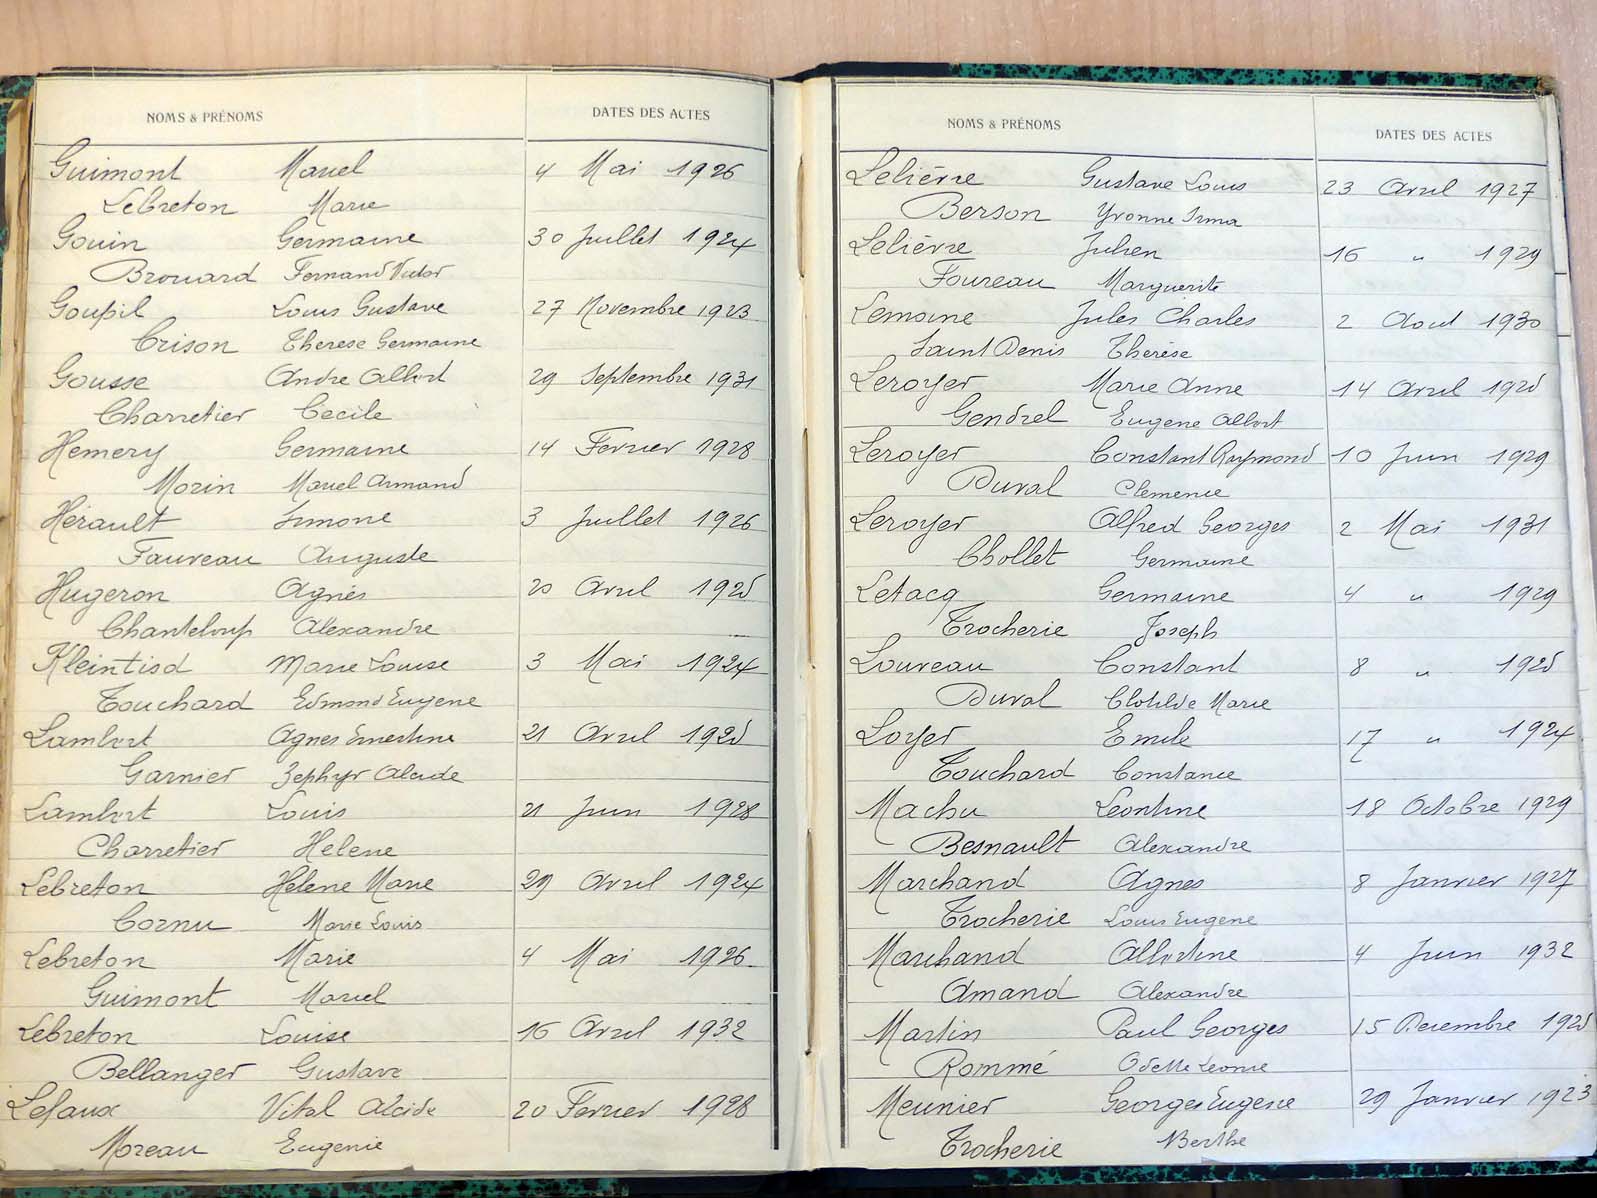 NOMS & PRÉNOMS DATES DES ACTES
Guimont Marcel 4 Mai 1926
Lebreton Marie
Gouin Germaine 30 Juillet 1924
Brouard Fernand Victor
Goupil Louis Gustave 27 Novembre 1923
Crison Therese Germaine
Gousse Andre Albert 29 Septembre 1931
Charretier Cecile
Hemery Germaine 14 Fevrier 1928
Morin Marcel Armand
Herault Simone 3 Juillet 1926
Fauveau Auguste
Hugeron Agnès 20 Avril 1925
Chanteloup Alexandre
Kleintisd Marie Louise 3 Mai 1924
Touchard Edmond Eugene
Lambert Agnes Ernestine 21 Avril 1925
Garnier Zephyr Alcide
Lambert Louis 21 Juin 1928
Charretier Helene
Lebreton Helene Marie 29 Avril 1924
Cornu Marie Louis
Lebreton Marie 4 Mai 1926
Guimont Marcel
Lebreton Louise 16 Avril 1932
Bellanger Gustave
Lefaux Vital Alcide 20 Fevrier 1928
Moreau Eugenie
NOMS & PRÉNOMS DATES DES ACTES
Lelièvre Gustave Louis 23 Avril 1927
Berson Yvonne Irma
Lelièvre Julien 16 " 1929
Foureau Marguerite
Lemoine Jules Charles 2 Aout 1930
Saint Denis Therèse
Leroyer Marie Anne 14 Avril 1925
Gendrel Eugene Albert
Leroyer Constant Raymond 10 Juin 1929
Duval Clemence
Leroyer Alfred Georges 2 Mai 1931
Chollet Germaine
Letacq Germaine 4 " 1929
Trocherie Joseph
Louveau Constant 8 " 1925
Duval Clotilde Marie
Loyer Emile 17 " 1924
Touchard Constance
Machu Leontine 18 Octobre 1929
Besnault Alexandre
Marchand Agnes 8 Janvier 1927
Trocherie Louis Eugene
Marchand Albertine 4 Juin 1932
Amand Alexandre
Martin Paul Georges 15 Decembre 1925
Rommé Odette Leonie
Meunier Georges Eugene 29 Janvier 1923
Trocherie Berthe